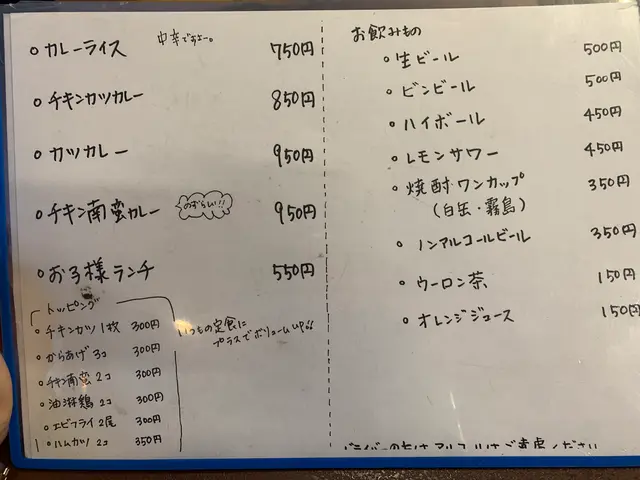 ○ カレーライス 中辛ですよー。 750円
○ チキンカツカレー 850円
○ カツカレー 950円
○ チキン南蛮カレー めずらしい!! 950円
○ お子様ランチ 550円
トッピング
○ チキンカツ 1枚 300円
○ からあげ 3コ 300円
○ チキン南蛮 2コ 300円
○ 油淋鶏 2コ 300円
○ エビフライ 2尾 300円
○ ハムカツ 2コ 350円
いつもの定食に
プラスでボリュームUP!!
お飲みもの
○ 生ビール 500円
○ ビンビール 500円
○ ハイボール 450円
○ レモンサワー 450円
○ 焼酎ワンカップ 350円
(白岳・霧島)
○ ノンアルコールビール 350円
○ ウーロン茶 150円
○ オレンジジュース 150円
ドライバーの方はアルコールはご遠慮ください